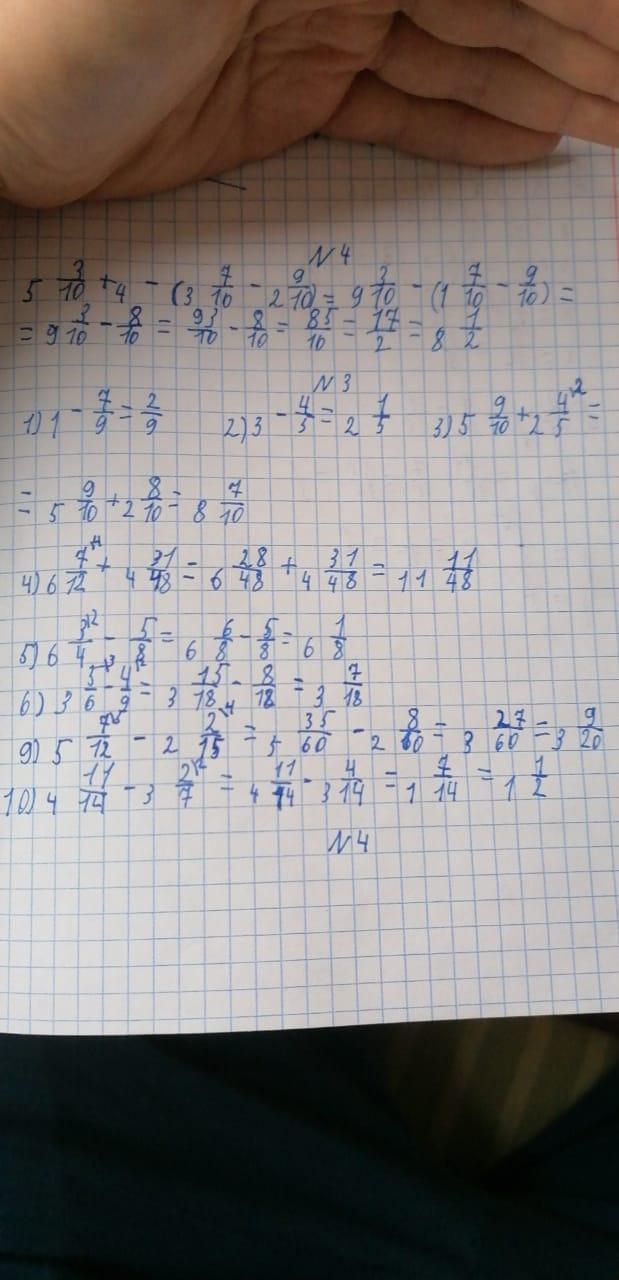 N 4
5 3/10 + 4 - (3 7/10 - 2 9/10) = 9 3/10 - (1 7/10 - 9/10) =
= 9 3/10 - 8/10 = 93/10 - 8/10 = 85/10 = 17/2 = 8 1/2
N 3
1) 1 - 7/9 = 2/9 2) 3 - 4/5 = 2 1/5 3) 5 9/10 + 2 4/5 ^2 =
= 5 9/10 + 2 8/10 = 8 7/10
4) 6 7/12 ^4 + 4 31/48 = 6 28/48 + 4 31/48 = 11 11/48
5) 6 3/4 ^2 - 5/8 = 6 6/8 - 5/8 = 6 1/8
6) 3 5/6 ^3 - 4/9 ^2 = 3 15/18 - 8/18 = 3 7/18
9) 5 7/12 ^5 - 2 2/15 ^4 = 5 35/60 - 2 8/60 = 3 27/60 = 3 9/20
10) 4 11/14 - 3 2/7 ^2 = 4 11/14 - 3 4/14 = 1 7/14 = 1 1/2
N 4